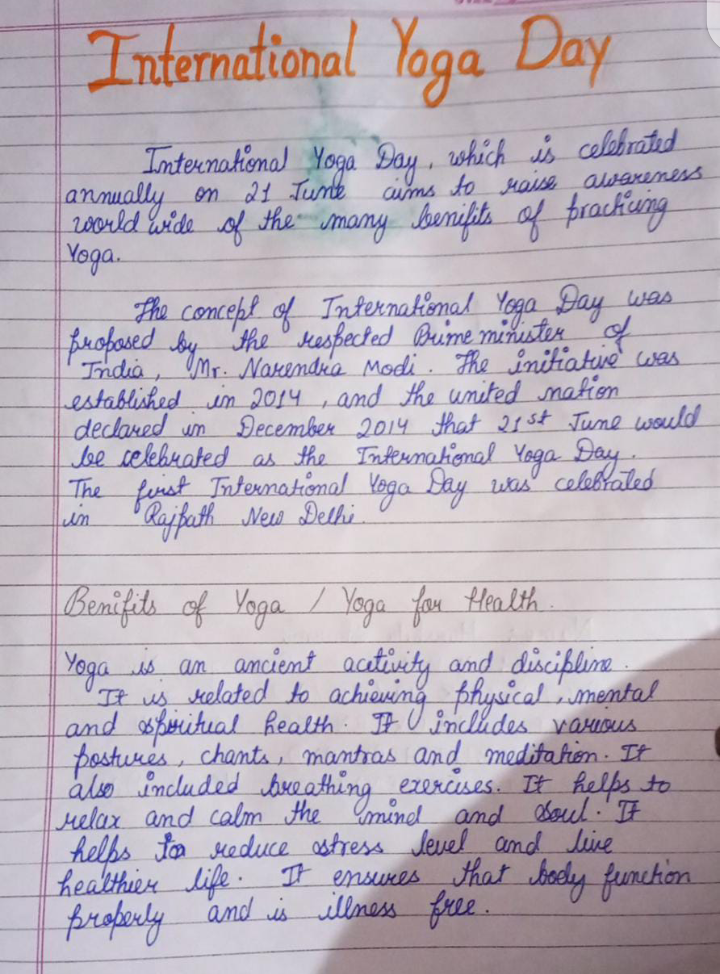 International Yoga Day
International Yoga Day, which is celebrated
annually on 21 June aims to raise awareness
world wide of the many benifits of practicing
Yoga.
The concept of International Yoga Day was
proposed by the respected Prime minister of
India, Mr. Narendra Modi. The initiative was
established in 2014, and the united nation
declared in December 2014 that 21st June would
be celebrated as the International Yoga Day.
The first International Yoga Day was celebrated
in Rajpath New Delhi.
Benifits of Yoga / Yoga for Health.
Yoga is an ancient acitivity and discipline.
It is related to achieving physical, mental
and spiritual health. It includes various
postures, chants, mantras and meditation. It
also included breathing exercises. It helps to
relax and calm the mind and soul. It
helps to reduce stress level and live
healthier life. It ensures that body function
properly and is illness free.